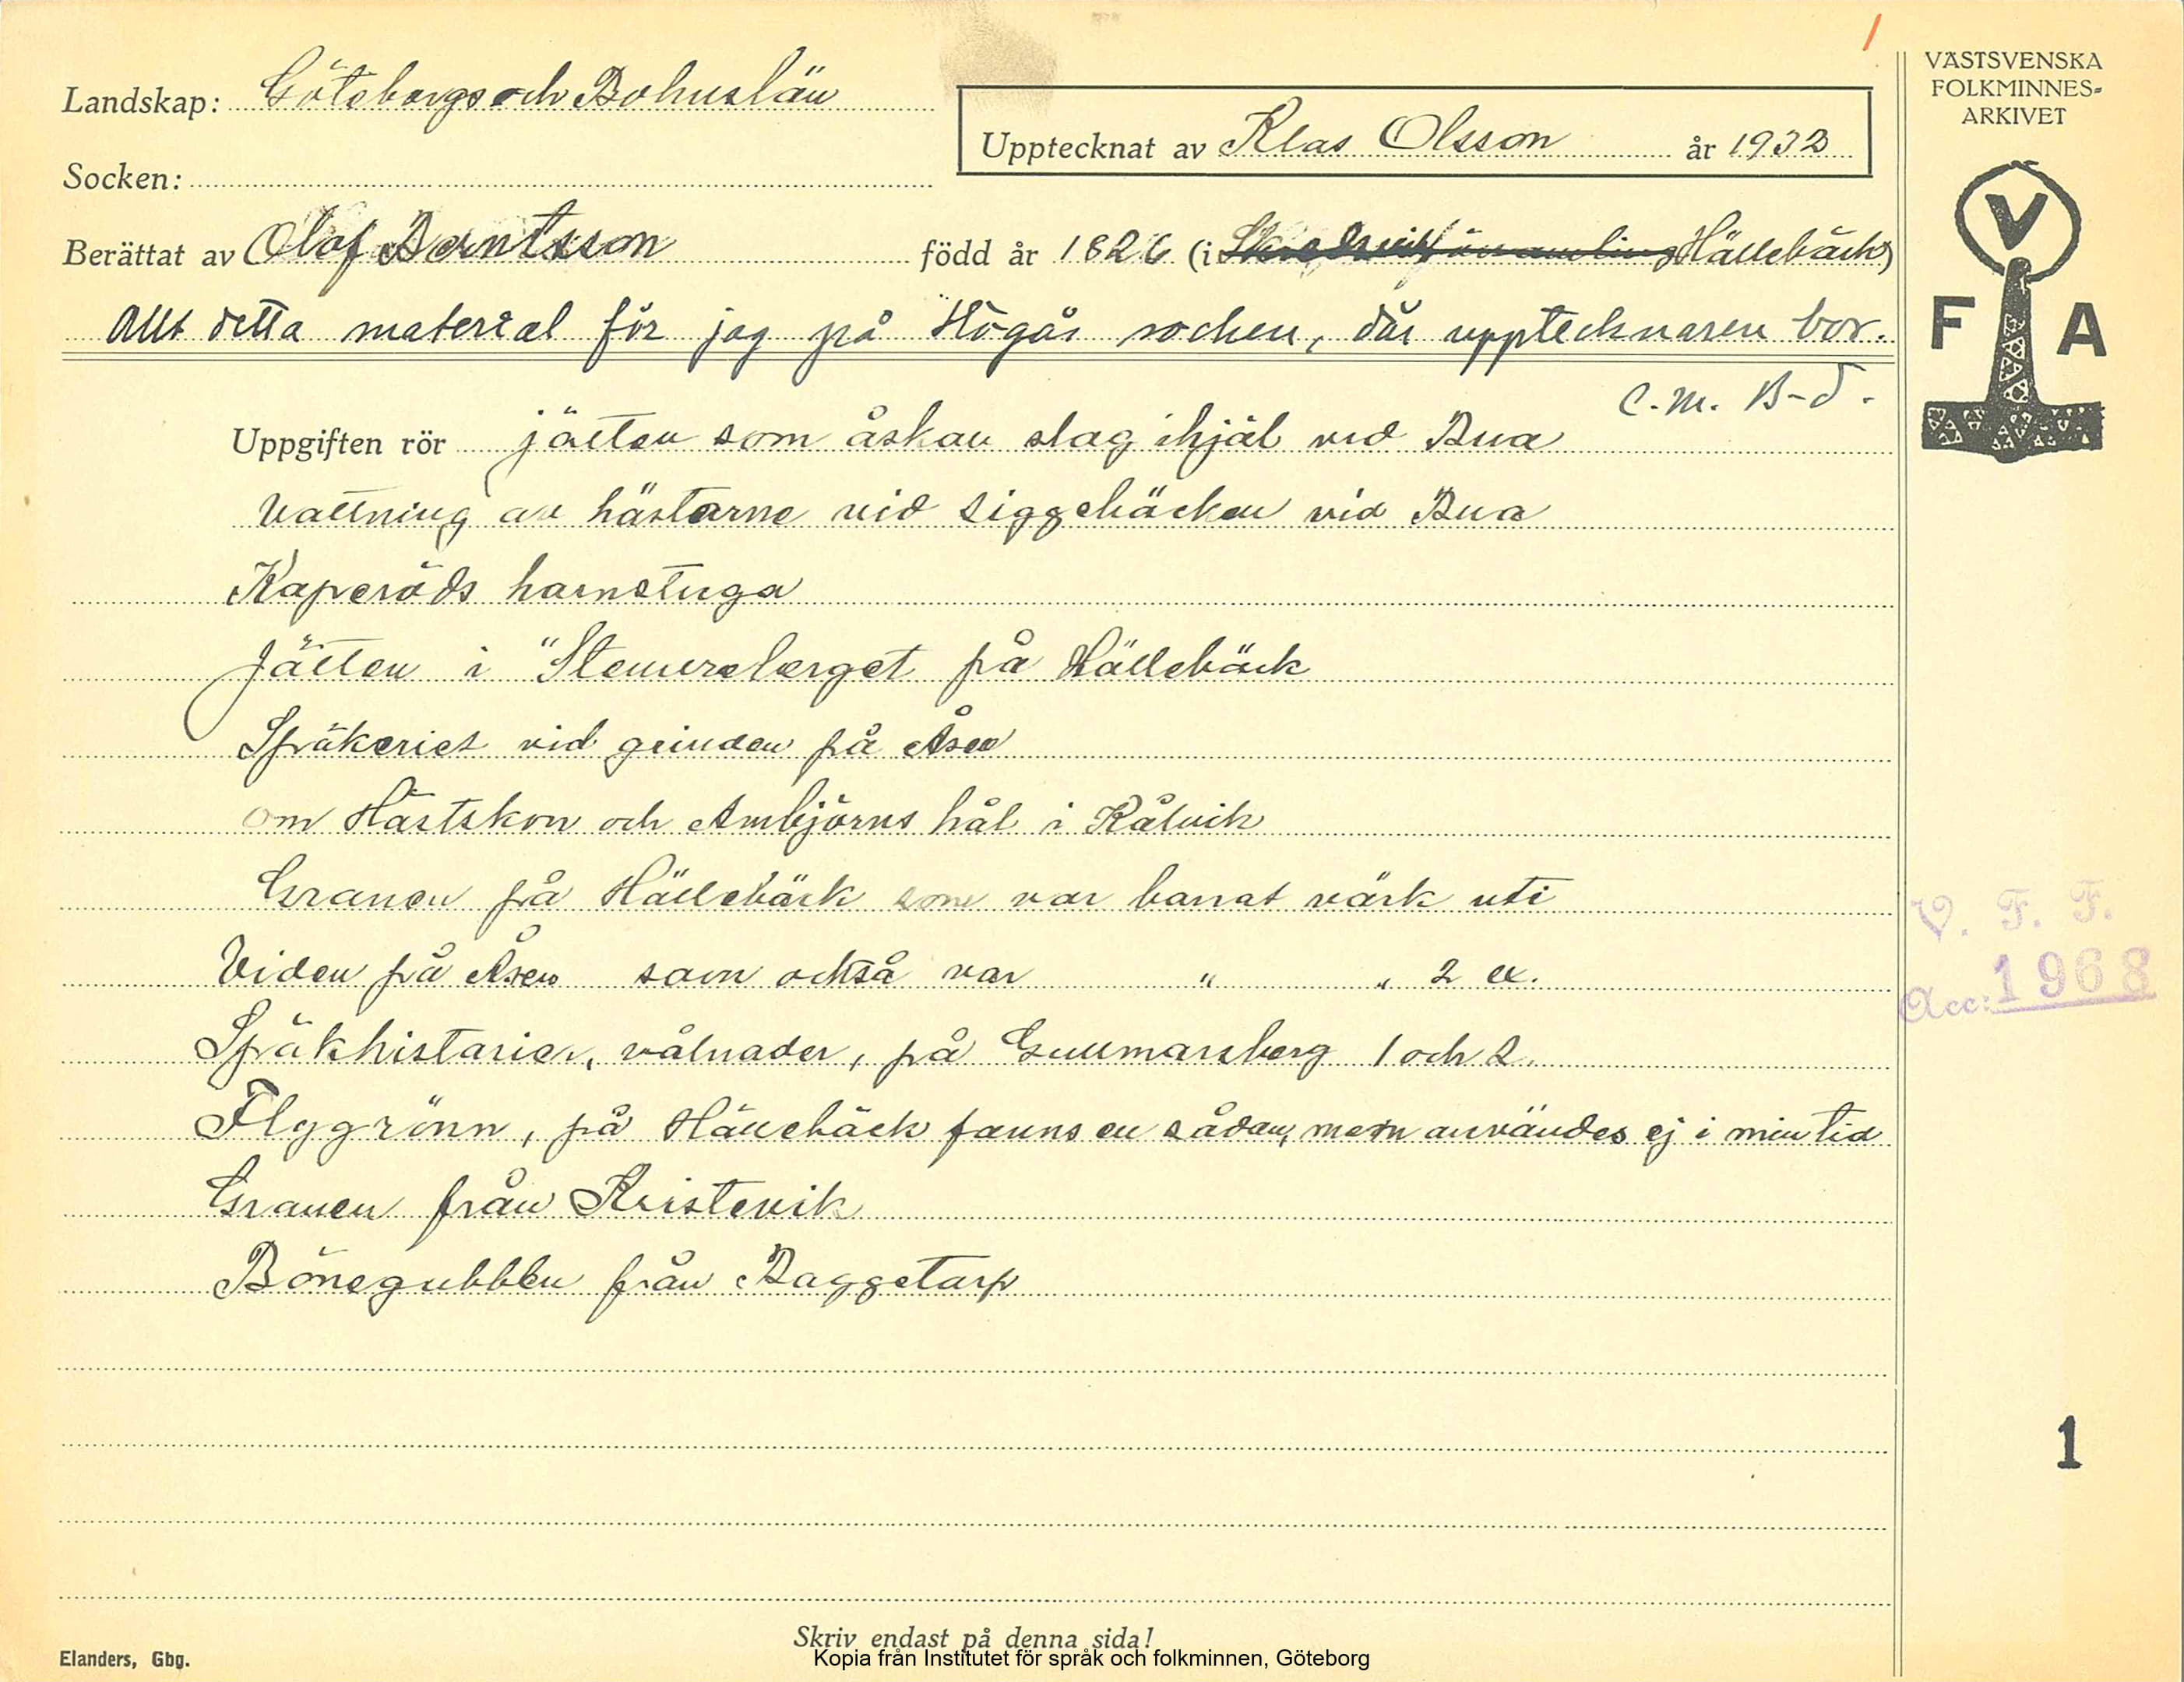 1
VÄSTSVENSKA
FOLKMINNES-
ARKIVET
V
F A
Landskap: Göteborgs och Bohuslän
Upptecknat av Klas Olsson år 1932
Socken:
Berättat av Olof Berntsson född år 1826 (i Hällebäck)
Allt detta material för jag på Högås socken, där upptecknaren bor.
C.M. B-d.
Uppgiften rör jätten som åskan slog ihjäl vid Bua
Vattning av hästarne vid Siggebäcken vid Bua
Kaperöds harnstuga
Jätten i "Stenureberget på Hällebäck
Spökeriet vid grinden på Åsen
om Hästskon och Ambjörns hål i Kålvik
Granen på Hällebäck som var borrat värk uti
Viden på Åsen som också var " " 2 ex.
Spökhistorier, vålnader, på Gullmarsberg 1 och 2.
Flygrönn, på Hällebäck fanns en sådan, men användes ej i min tid
Granen från Kristevik
Bönegubben från Baggetorp
V. F. F.
Acc: 1968
1
Skriv endast på denna sida!
Kopia från Institutet för språk och folkminnen, Göteborg
Elanders, Gbg.